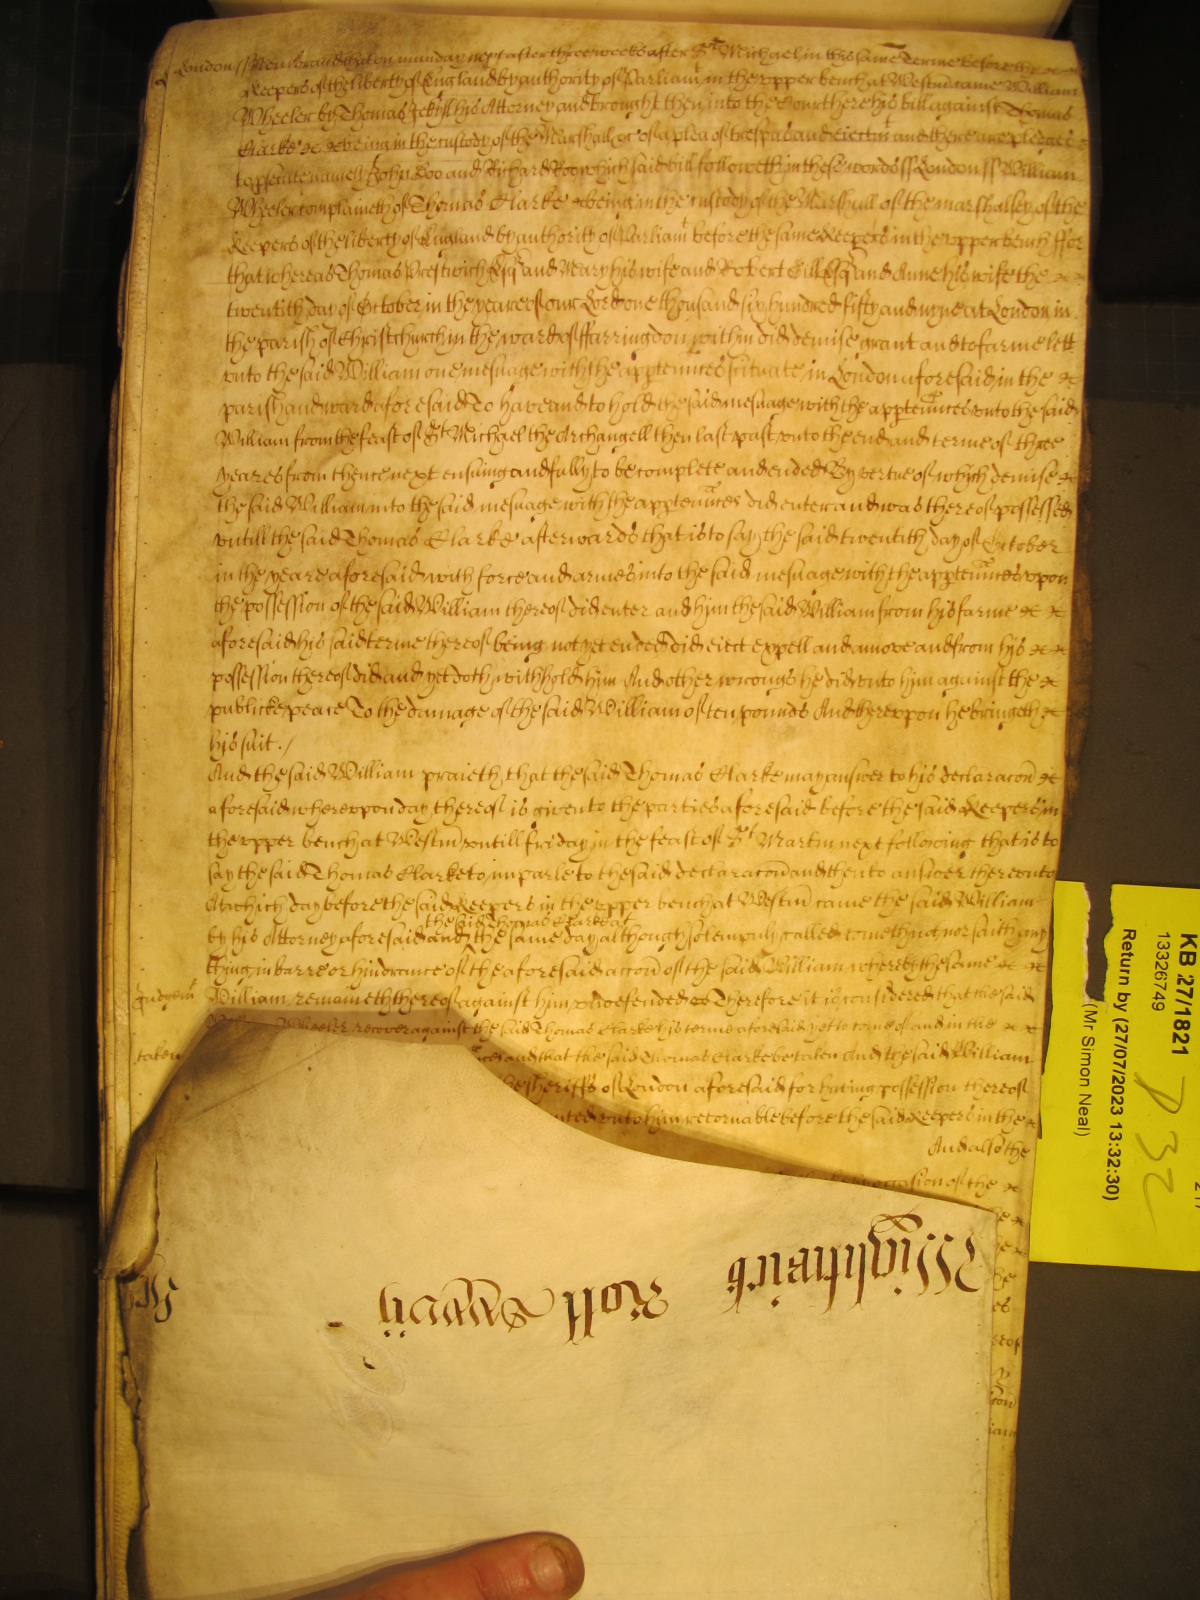 London ss Memorand that on munday next after three weeks after St Michael in this same Terme before the
Keepers of the liberty of England by authority of Parliamt in the vpper bench at Westm came William
Wheeler by Thomas Jekyll his Attorney and brought then into the Court here his bill against Thomas
Clarke being in the custody of the Marshall &c of a plea of trespas and eiectmt and there are pledges
to psecute namely John Doo and Richard Roo which said bill followeth in these words ss London ss William
Wheeler complaineth of Thomas Clarke being in the custody of the Marshall of the marshalsey of the
Keepers of the liberty of England by authority of Parliamt before the same Keepers in the vpper bench ffor
that whereas Thomas Prestwich Esqr and Mary his wife and Robert Gill Esqr and Anne his wife the
twentith day of October in the yeare of our Lord one thousand six hundred fifty and nyne at London in
the parish of Christchurch in the ward of ffarringdon within did demise grant and to farme lett
vnto the said William one mesuage with the apptennces scituate in London aforesaid in the
parish and ward aforesaid To have and to hold the said mesuage with the apptennces vnto the said
William from the feast of St Michael the Archangell then last past vnto the end and terme of three
yeares from thence next ensuing and fully to be complete and ended By vertue of which demise
the said William into the said mesuage with the apptennces did enter and was thereof possessed
vntill the said Thomas Clarke afterwards that is to say the said twentith day of October
in the yeare aforesaid with force and armes into the said mesuage with the apptennces vpon
the possession of the said William thereof did enter and him the said William from his farme
aforesaid his said terme thereof being not yet ended did eiect expell and amove and from his
possession thereof did and yet doth withhold him And other wrongs he did vnto him against the
publicke peace To the damage of the said William of ten pounds And therevpon he bringeth
his suit ./
And the said William praieth that the said Thomas Clarke may answer to his declaracon
aforesaid wherevpon day thereof is given to the parties aforesaid before the said Keepers in
the vpper bench at Westm vntill friday in the feast of St Martin next following that is to
say the said Thomas Clarke to imparle to the said declaracon and then to answer therevnto
At which day before the said Keepers in the vpper bench at Westm came the said William
the said Thomas Clarke at
by his Attorney aforesaid and the same day although solempnly called come thnot nor saith any
thing in barre or hindrance of the aforesaid accon of the said William whereby the same
Judgemt William remaineth thereof against him vndefended Therefore it is considered that the said
Wheeler recover against the said Thomas Clarke his terme aforesaid yet to come of and in the
taken and that the said Thomas Clarke be taken And the said William
the sheriffs of London aforesaid for having possession thereof
vnto him retornable before the said Keepers in the
And also the
occasion of the
Wightwick Roll
KB 27/1821
13326749
Return by (27/07/2023 13:32:30)
(Mr Simon Neal)
P 32